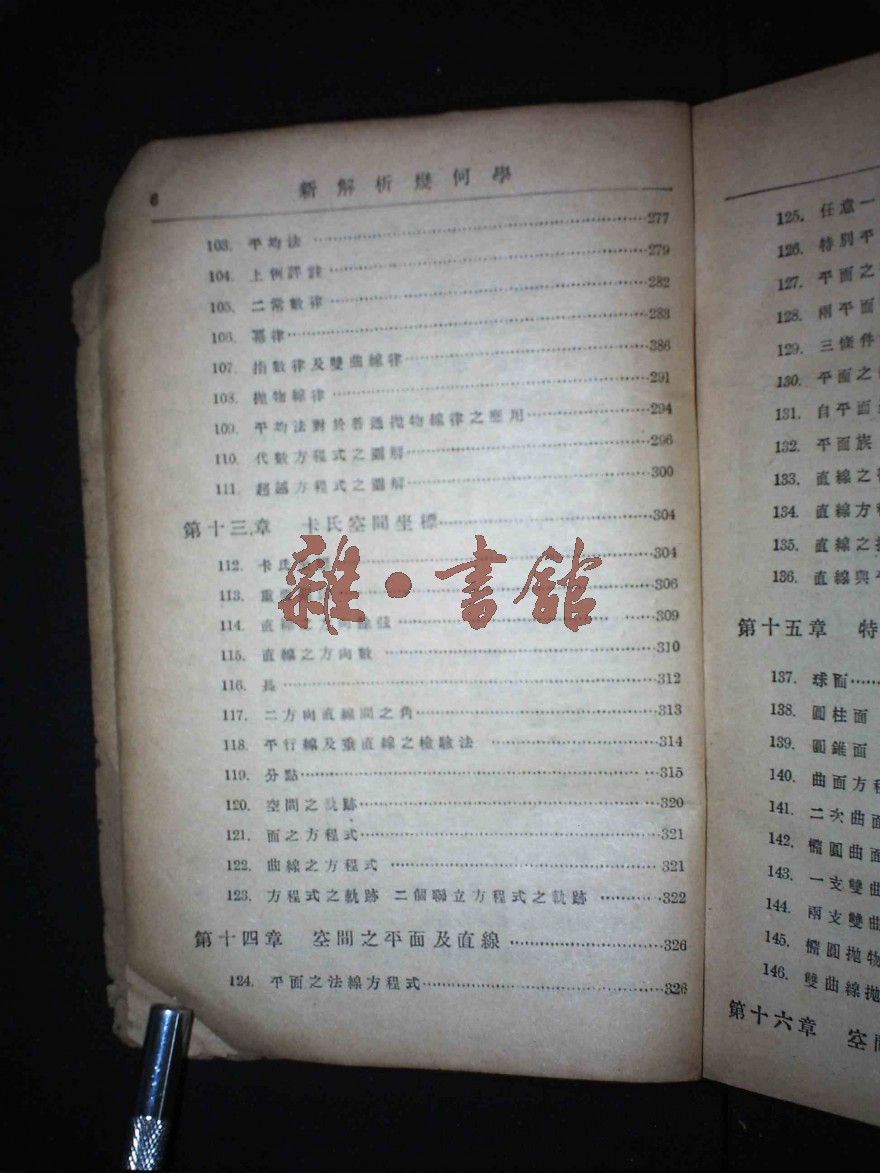 6 新解析幾何學
103. 平均法 277
104. 上例評註 279
105. 二常數律 282
106. 冪律 283
107. 指數律及雙曲線律 386
108. 拋物線律 291
109. 平均法對於普通拋物線律之應用 294
110. 代數方程式之圖解 296
111. 超越方程式之圖解 300
第十三章 卡氏空間坐標 304
112. 卡氏 304
113. 重 306
114. 直線之方向餘弦 309
115. 直線之方向數 310
116. 長 312
117. 二方向直線間之角 313
118. 平行線及垂直線之檢驗法 314
119. 分點 315
120. 空間之軌跡 320
121. 面之方程式 321
122. 曲線之方程式 321
123. 方程式之軌跡 二個聯立方程式之軌跡 322
第十四章 空間之平面及直線 326
124. 平面之法線方程式 326
雜·書館
125. 任意一
126. 特別平
127. 平面之
128. 兩平面
129. 三條件
130. 平面之
131. 自平面
132. 平面族
133. 直線之
134. 直線方
135. 直線之
136. 直線與平
第十五章 特
137. 球面
138. 圓柱面
139. 圓錐面
140. 曲面方程
141. 二次曲面
142. 橢圓曲面
143. 一支雙曲
144. 兩支雙曲
145. 橢圓拋物
146. 雙曲線拋
第十六章 空間